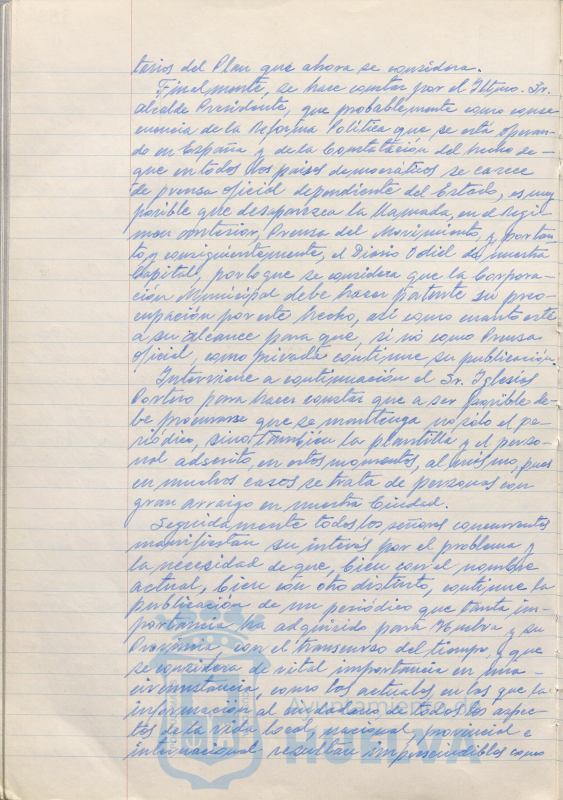 terios del Plan que ahora se considera.
Finalmente, se hace constar por el Iltmo. Sr.
Alcalde Presidente, que probablemente como conse
cuencia de la Reforma Política que se está operan
do en España y de la Constatación del hecho de -
que en todos los países democráticos se carece
de prensa oficial dependiente del Estado, es muy
posible que desaparezca la llamada, en el Régi
men anterior, Prensa del Movimiento y, por tan
to, y consiguientemente, el Diario Odiel de nuestra
Capital, por lo que se considera que la Corpora-
ción Municipal debe hacer patente su preo-
cupación por este hecho, así como cuanto esté
a su alcance para que, si no como Prensa
oficial, como privada continue su publicación.
Interviene a continuación el Sr. Iglesias
Portero para hacer constar que a ser posible de-
be procurarse que se mantenga no sólo el pe-
riódico, sino también la plantilla y el perso-
nal adscrito, en estos momentos, al mismo, pues
en muchos casos se trata de personas con
gran arraigo en nuestra Ciudad.
Seguidamente todos los señores concurrentes
manifiestan su interés por el problema y
la necesidad de que, bien con el nombre
actual, bien con otro distinto, continue la
publicación de un periódico que tanta im-
portancia ha adquirido para Huelva y su
Provincia, con el transcurso del tiempo, y que
se considera de vital importancia en una -
circunstancia, como los actuales, en las que la
información al ciudadano de todos los aspec-
tos de la vida local, nacional, provincial e
internacional resultan imprescindibles como
Ayuntamiento de
HUELVA